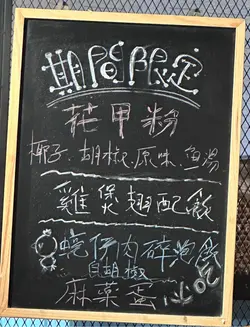 期間限定
花甲粉
椰子.胡椒.原味.魚湯
雞煲翅配飯
蛇仔肉碎泡飯
白胡椒
麻葉蛋